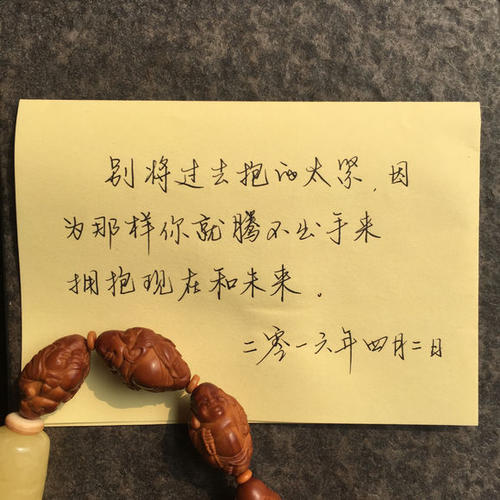 别将过去抱的太紧,因
为那样你就腾不出手来
拥抱现在和未来。
二零一六年四月二日